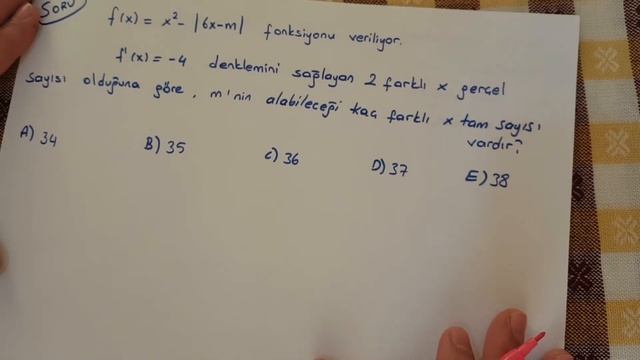 SORU
f(x) = x² - |6x-m| fonksiyonu veriliyor.
f'(x) = -4 denklemini sağlayan 2 farklı x gerçel
sayısı olduğuna göre, m'nin alabileceği kaç farklı x tam sayısı
vardır?
A) 34 B) 35 C) 36 D) 37 E) 38